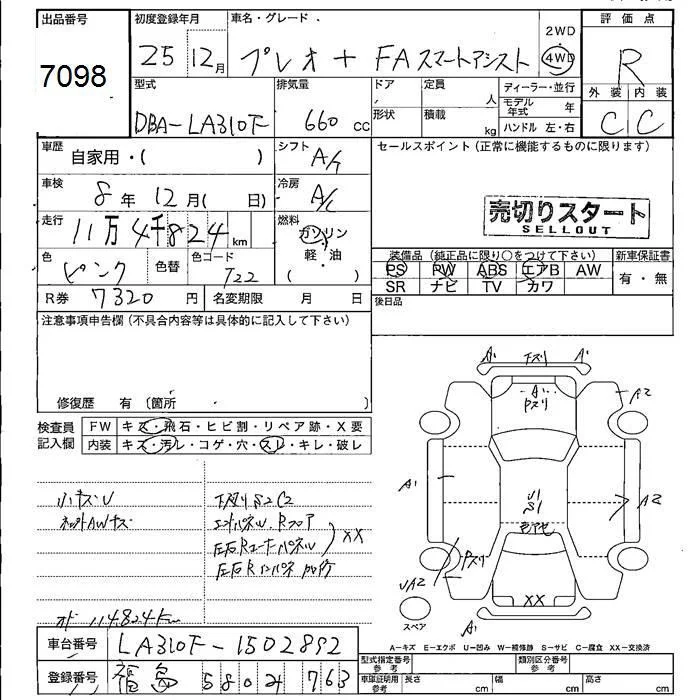 出品番号
7098
初度登録年月
25 12月
車名・グレード
プレオ + FA スマートアシスト
2WD
4WD
評価点
R
外装 内装
C C
型式
DBA-LA310F
排気量
660 cc
ドア
形状
定員
人
積載
kg
ディーラー・並行
モデル年式 年
ハンドル 左・右
車歴
自家用・( )
シフト
A/T
セールスポイント (正常に機能するものに限ります)
車検
8年 12月( 日)
冷房
A/C
売切りスタート
SELLOUT
走行
11万4千824km
燃料
ガソリン
軽・油
( )
色
ピンク
色替
色コード
T22
装備品 (純正品に限り○をつけて下さい)
新車保証書
PS PW ABS エアB AW
SR ナビ TV カワ
有・無
R券 7320円
名変期限 月 日
後日品
注意事項申告欄 (不具合内容等は具体的に記入して下さい)
修復歴 有 (箇所
検査員
記入欄
FW キズ・飛石・ヒビ割・リペア跡・X要
内装 キズ・汚レ・コゲ・穴・スレ・キレ・破レ
小キズU
ネットAWキズ
下廻りS2C2
エンドパネル Rフロア
左右Rコーナーパネル
XX
左右Rインパネ
オド 114824km
A1 下スリ A1
A1
Pスリ
A2
A1
U1
S1
色アセ
A2
Pスリ
UA2
XX
スペア
A1
A-キズ E-エクボ U-凹み W-補修跡 S-サビ C-腐食 XX-交換済
車台番号
LA310F-1502892
登録番号
福島 580 763
型式指定番号
参考
類別区分番号
参考
車庫証明用
参考
長さ cm
幅 cm
高さ cm